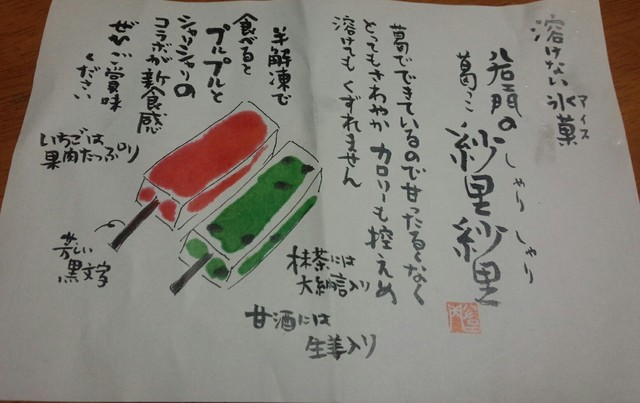 溶けない氷菓
アイス
葛っこ 紗里紗里
しゃり しゃり
葛でできているので甘ったるくなく
とってもさわやか カロリーも控えめ
溶けても くずれません
半解凍で
食べると
プルプルと
シャリシャリの
コラボが新食感
ぜひご賞味
ください
いちごは
果肉たっぷり
芳しい
黒文字
抹茶には
大納言入り
甘酒には
生姜入り